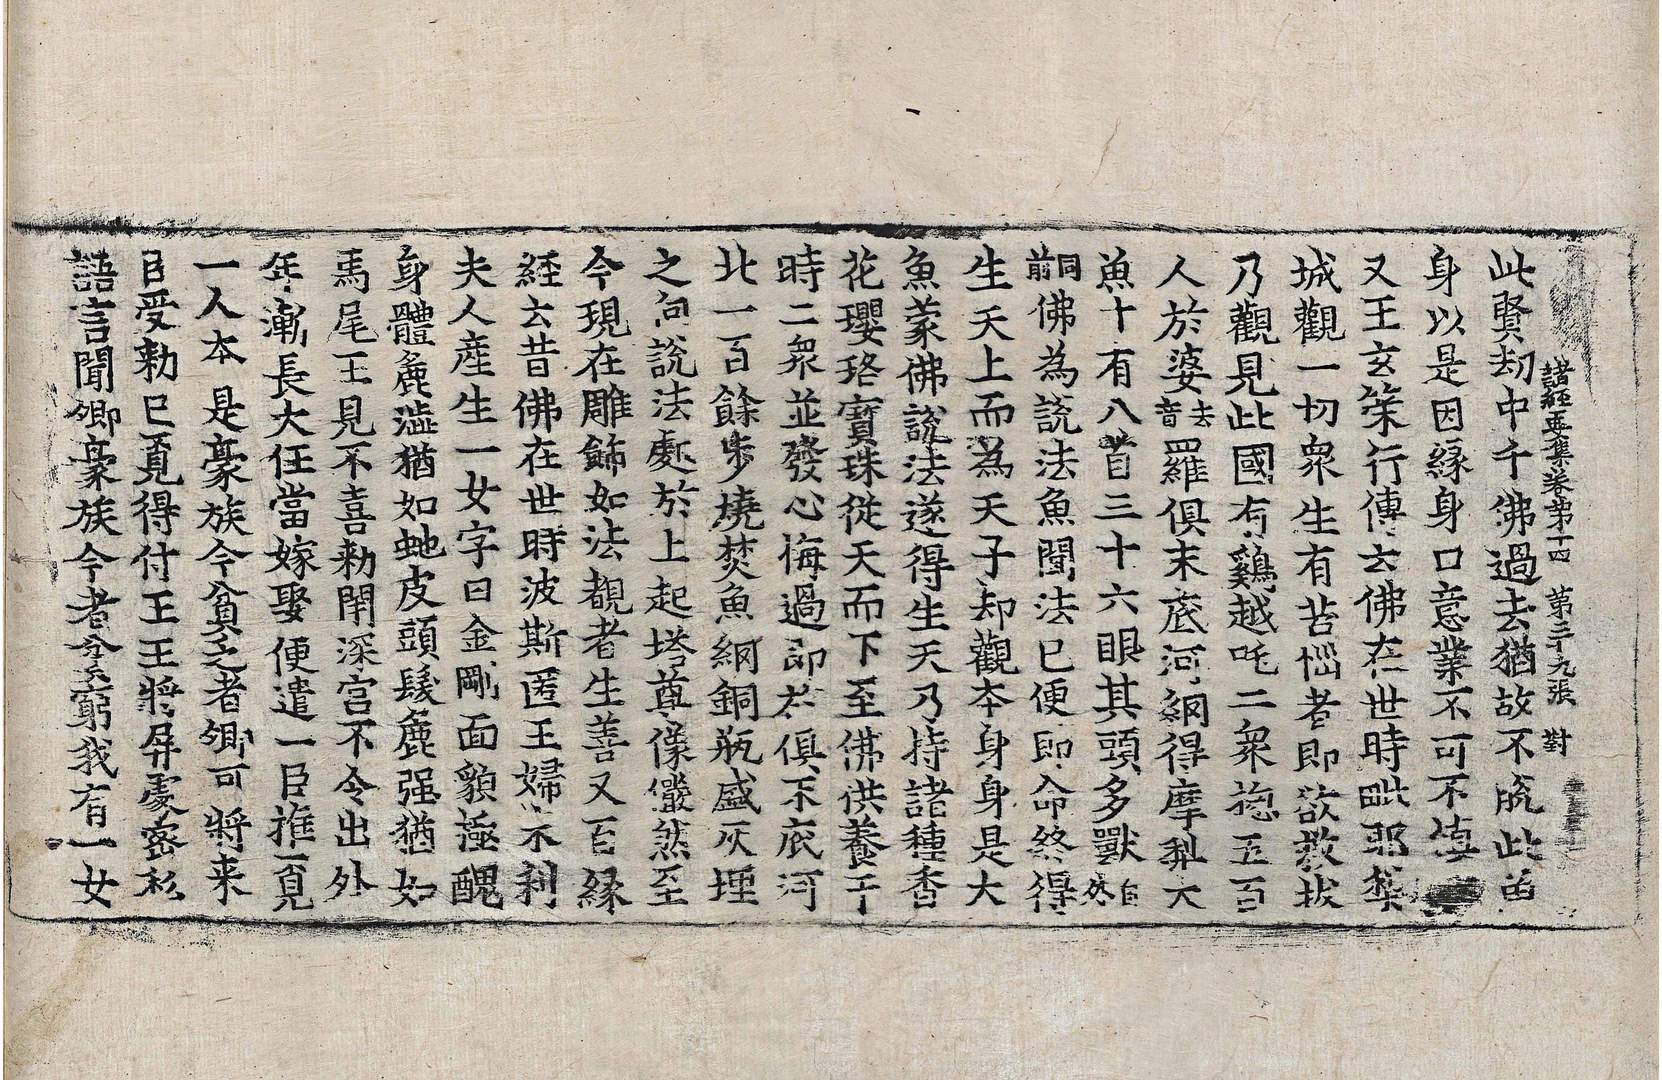 諸經要集卷第十四 第三十九張 對
此賢劫中千佛過去猶故不脫此魚
身以是因緣身口意業不可不慎
又王玄策行傳云佛在世時毗耶離
城觀一切眾生有苦惱者即欲救拔
乃觀見此國有鷄越吒二眾揔五百
人於婆去音羅俱末底河網得摩梨大
魚十有八首三十六眼其頭多獸自然
同前佛為說法魚聞法已便即命終得
生天上而為天子却觀本身身是大
魚蒙佛說法遂得生天乃持諸種香
花瓔珞寶珠從天而下至佛供養于
時二眾並發心悔過即於俱末底河
北一百餘步燒焚魚網銅瓶盛灰埋
之向說法處於上起塔尊像儼然至
今現在雕飾如法覩者生善又百緣
經云昔佛在世時波斯匿王婦末利
夫人產生一女字曰金剛面貌極醜
身體麁澁猶如虵皮頭髮麁强猶如
馬尾王見不喜勅閉深宮不令出外
年漸長大任當嫁娶便遣一臣推覓
一人本是豪族今貧乏者卿可將来
臣受勅已覓得付王王將屏處密私
語言聞卿豪族今者貧窮我有一女